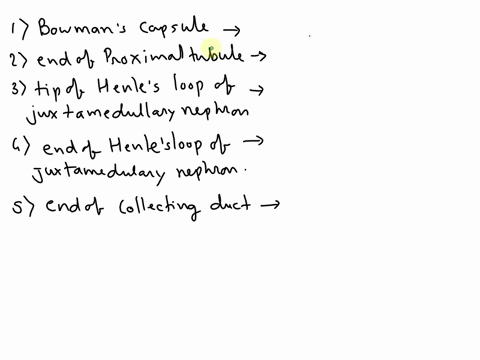 1) Bowman's Capsule →
2) end of Proximal tubule →
3) tip of Henle's loop of →
juxtamedullary nephron
4) end of Henle's loop of →
juxtamedulary nephron.
5) end of collecting duct →